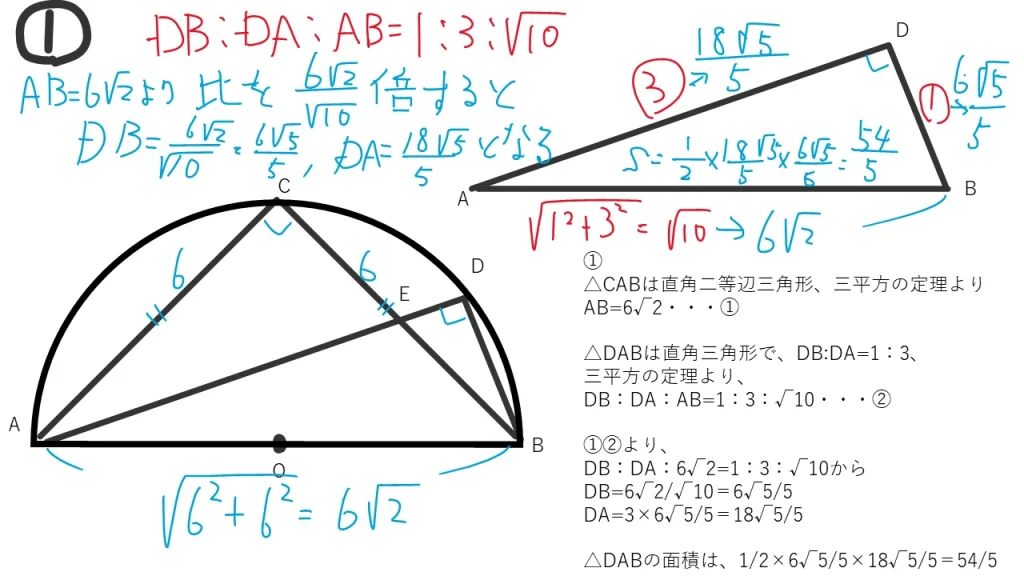 ①
DB:DA:AB=1:3:√10
AB=6√2より 比を 6√2/√10 倍すると
DB=6√2/√10=6√5/5, DA=18√5/5となる
D
18√5/5
③
①
6√5/5
S=1/2×18√5/5×6√5/5=54/5
A
B
√1²+3²=√10→6√2
C
6
6
D
E
A
B
O
√6²+6²=6√2
①
△CABは直角二等辺三角形、三平方の定理より
AB=6√2・・・①
△DABは直角三角形で、DB:DA=1：3、
三平方の定理より、
DB：DA：AB=1：3：√10・・・②
①②より、
DB：DA：6√2=1：3：√10から
DB=6√2/√10＝6√5/5
DA=3×6√5/5＝18√5/5
△DABの面積は、1/2×6√5/5×18√5/5＝54/5